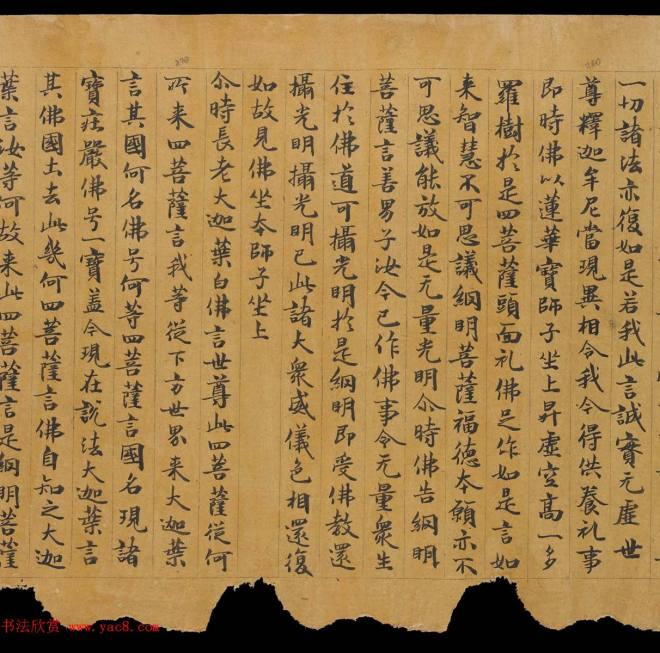 一切諸法亦復如是若我此言誠實无虛世
尊釋迦牟尼當現異相令我今得供養礼事
即時佛以蓮華寶師子坐上昇虛空高一多
羅樹於是四菩薩頭面礼佛足作如是言如
来智慧不可思議網明菩薩福德本願亦不
可思議能放如是无量光明尒時佛告網明
菩薩言善男子汝今已作佛事令无量衆生
住於佛道可攝光明於是網明即受佛教還
攝光明攝光明已此諸大衆威儀色相還復
如故見佛坐本師子坐上
尒時長老大迦葉白佛言世尊此四菩薩従何
所来四菩薩言我等従下方世界来大迦葉
言其國何名佛号何等四菩薩言國名現諸
寶莊嚴佛号一寶盖今現在說法大迦葉言
其佛國土去此幾何四菩薩言佛自知之大迦
葉言汝等何故来此四菩薩言是網明菩薩
书法欣赏 www.yac8.com